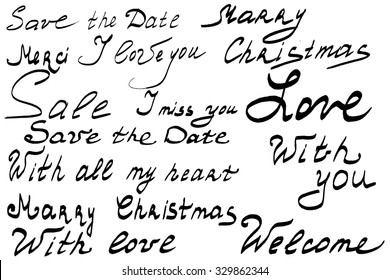 Save the Date Marry
Merci I love you Christmas
Sale I miss you Love
Save the Date
With all my heart With you
Marry Christmas
With love Welcome
shutterstock.com · 329862344